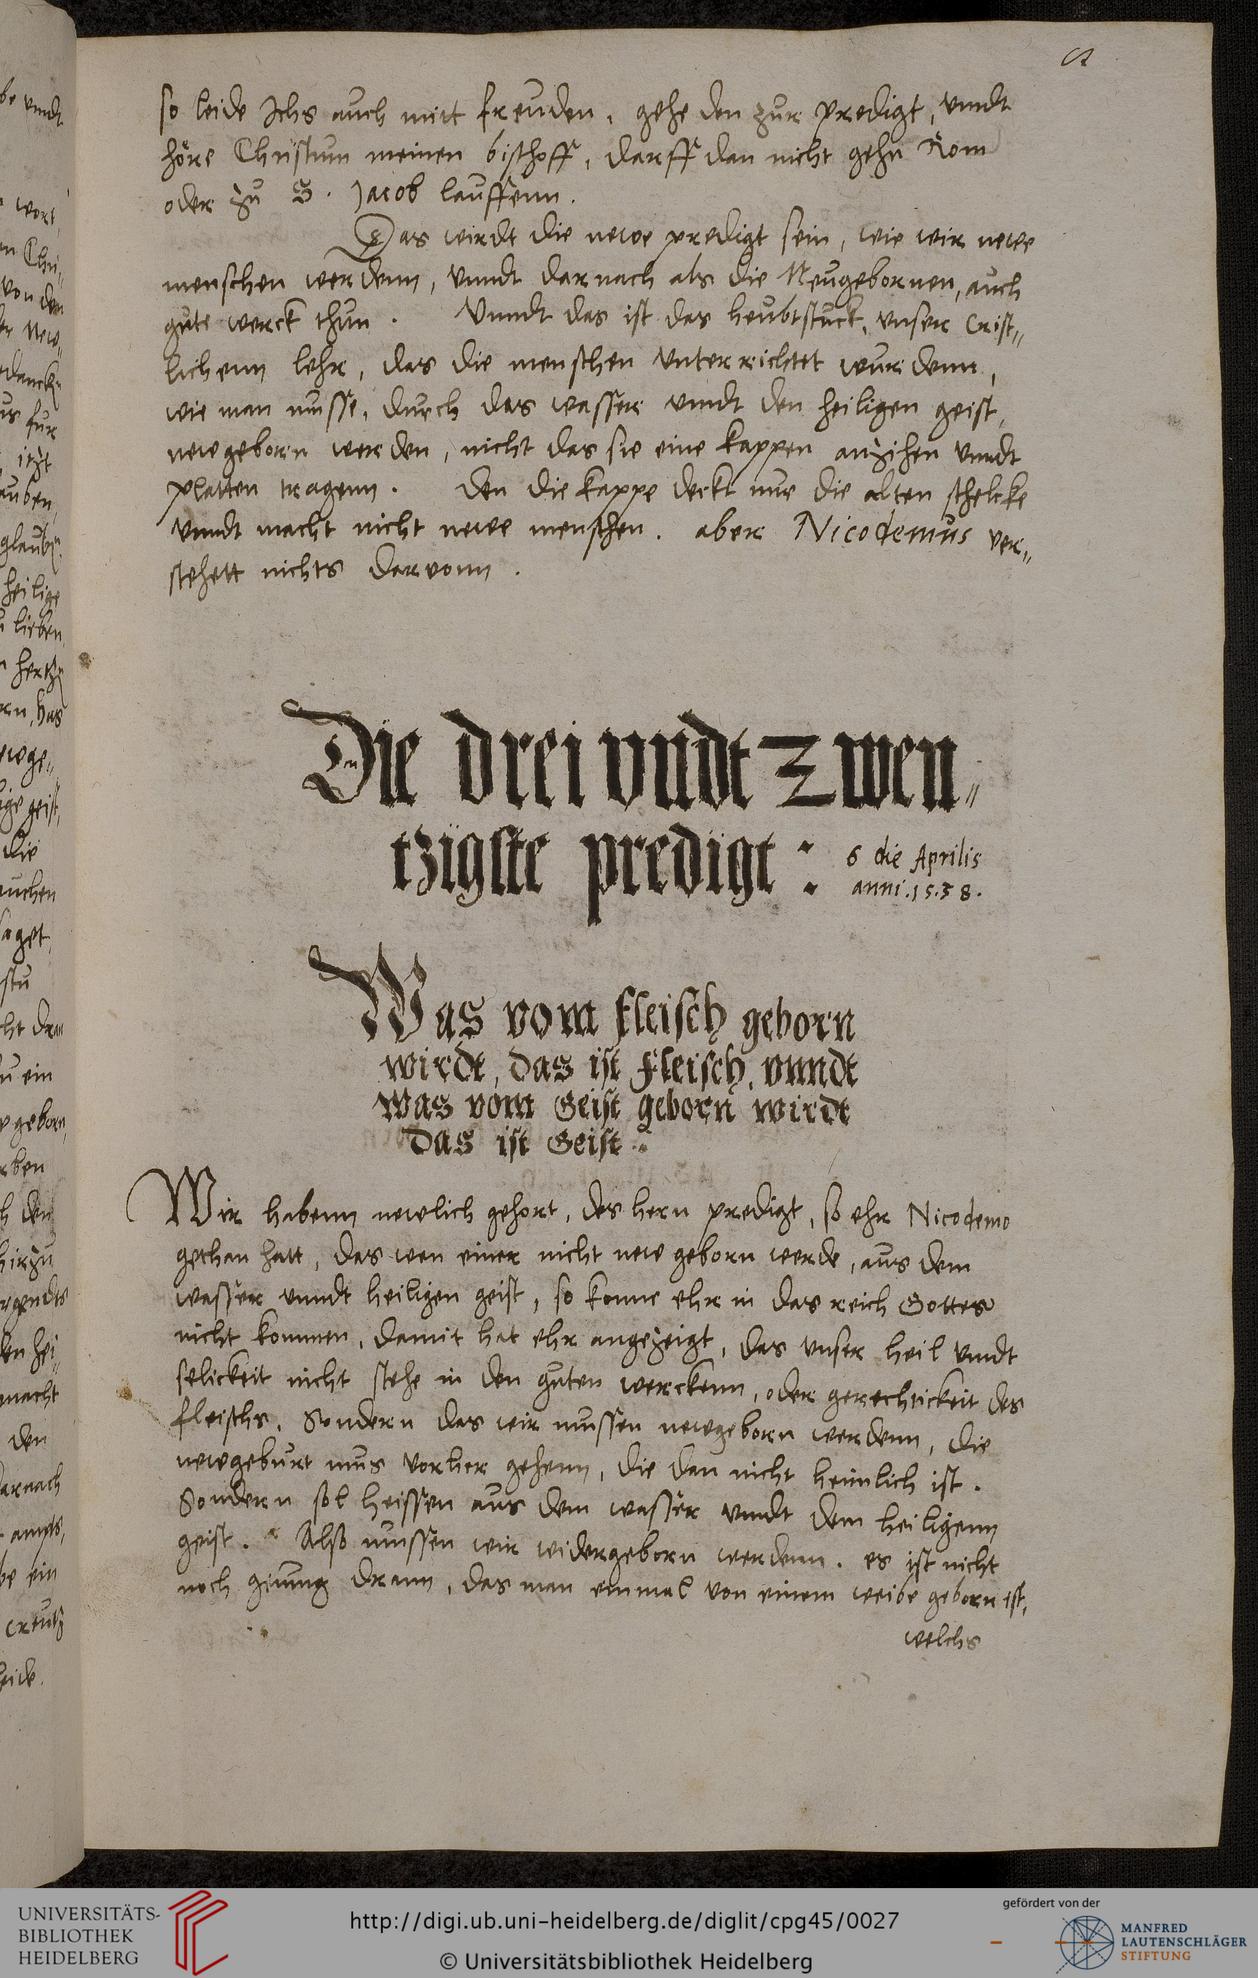 so leide Ichs auch mitt freuden, gehe den zur predigt, vnndt
höre Christum meinen bischoff, darff dan nicht gehn Rom
oder zu S. Jacob lauffenn.
Das wirdt die newe predigt sein, wie wir newe
menschen werdenn, vnndt darnach als die Neugebornen, auch
gute werck thun. Vnndt das ist das heubtstuck, vnser Crist„
lichenn lehr, das die menschen vnterrichtet wurdenn,
wie man musse, durch das wasser vnndt den heiligen geist,
newgeborn werden, nicht das sie eine kappen anzihen vnndt
platten tragenn. Den die kappe deckt nur die alten schelcke
vnndt macht nicht newe menschen. aber Nicodemus ver„
stehett nichts darvonn.
Die drei vndt Zwen„
tzigste predigt:
6 die Aprilis
anni. 1538.
Was vom fleisch geborn
wirdt, das ist fleisch, vnndt
was vom Geist geborn wirdt
das ist Geist.
Wir habenn newlich gehort, des hern predigt, so ehr Nicodemo
gethan hatt, das wen einer nicht new geborn werde, aus dem
wasser vnndt heiligen geist, so konne ehr in das reich Gottes
nicht kommen, damit hat ehr angezeigt, das vnser heil vndt
selickeit nicht stehe in den guten werckenn, oder gerechtickeit des
fleischs, Sondern das wir mussen newgeborn werdenn, die
newgeburt mus vorher gehenn, die dan nicht heimlich ist.
Sondern sol heissen aus dem wasser vnndt dem heiligenn
geist. Also mussen wir widergeborn werdenn. es ist nicht
noch genung drann, das man einmal von einem weibe geborn ist,
welchs
UNIVERSITÄTS-
BIBLIOTHEK
HEIDELBERG
http://digi.ub.uni-heidelberg.de/diglit/cpg45/0027
© Universitätsbibliothek Heidelberg
gefördert von der
MANFRED
LAUTENSCHLÄGER
STIFTUNG